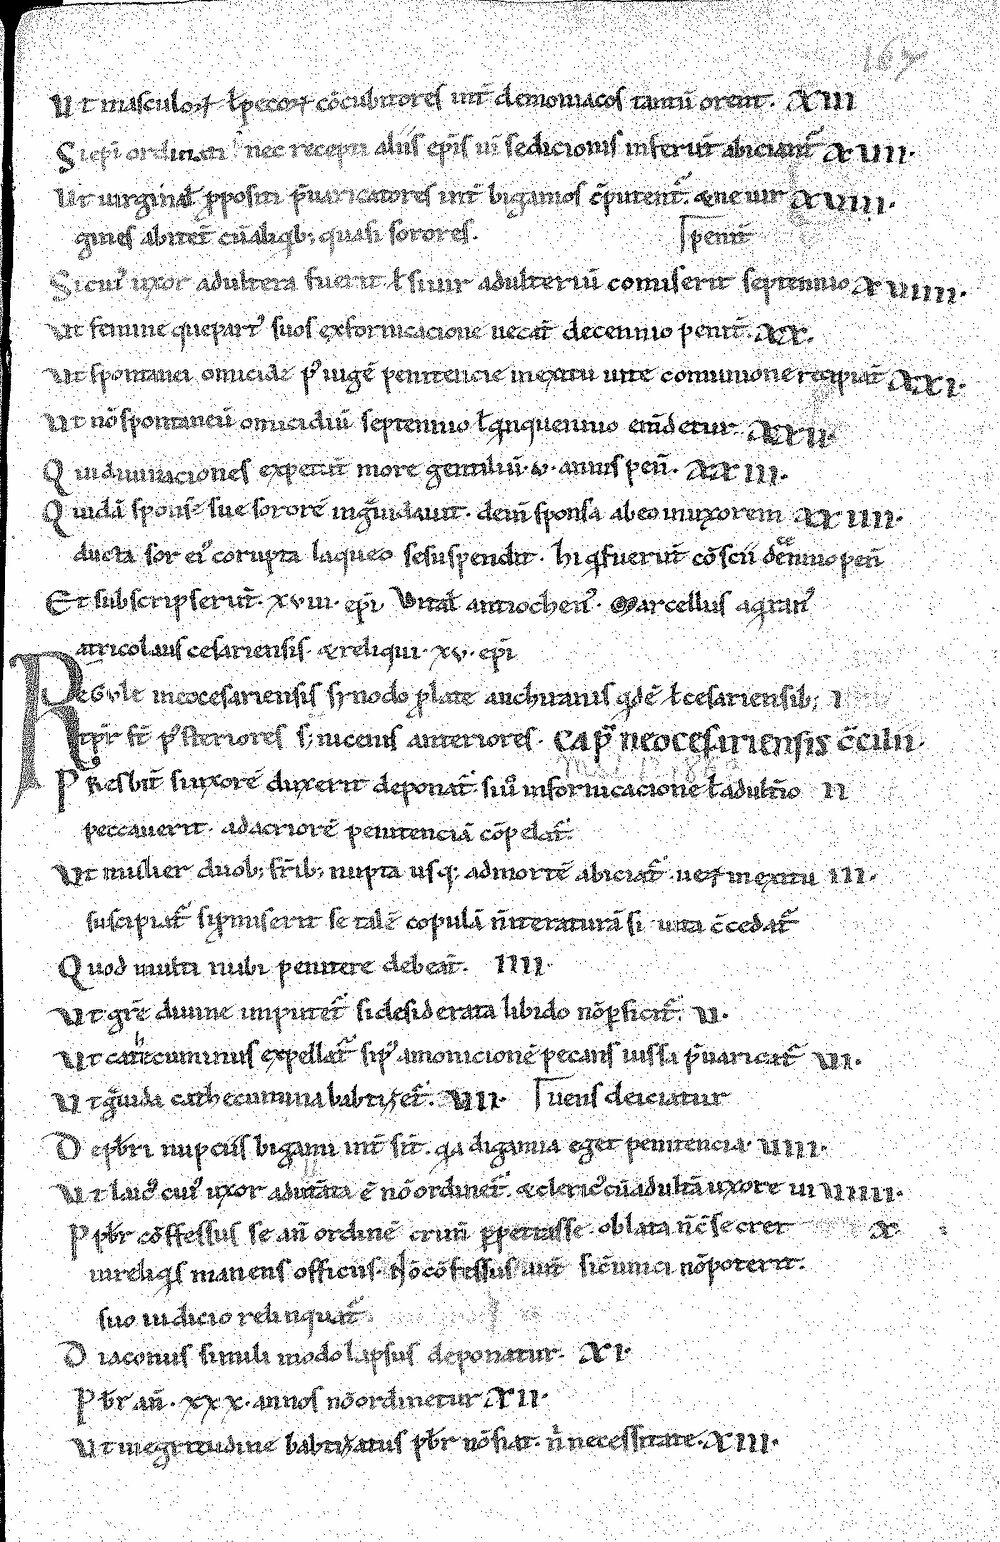 167
Ut masculoꝝ ł pecoꝝ cōcubitores int̄ demoniacos tantū orent. XVII
Si ep̄i ordinati nec recepti aliis ep̄is ui sediciones inferūt abiciant᷑ XVIII.
Ut uirginal ꝓpositi p̄uaricatores int̄ bigamos c̄putent᷑. & ne uir XVIIII.
gines abitet̄ cū aliqb; quasi sorores. penit̄
Si cui᷒ uxor adultera fuerit ł si uir adulteriū comiserit septennio XVIIII.
Ut femine que part᷒ suos ex fornicacione necāt decennio penit̄. XX.
Ut spontanei omicide p᷒ iugē penitencie in exitu uite comunione recipiāt XXI.
Ut nō spontaneū omicidiū septennio ł qinquennio em̄detur XXII.
Qui diuinaciones expetūt more gentiliū .v. annis pen̄. XXIII.
Quidā sponse sue sororē ingrauidauit. dein̄ sponsa ab eo in uxorem XXIIII.
ducta soror ei᷒ corupta laqueo se suspendit. hi q̇ fuerūt cōscii decennio pen̄
Et subscripserūt. XVIII. ep̄i Vital antiochen᷒. Marcellus aqiran᷒
atricolaus cesariensis. & reliqui. xv. ep̄i
Regule in eocesariensis synodo plate anchiranis qdē ł cesariensib; I
at p̄r st̄ p᷒steriores s; nicenis anteriores. Cap̄ neocesariensis c̄cilii.
Presbit̄ si uxorē duxerit deponat᷑. si u᷒ in fornicacione ł adultīo II
peccauerit. ad acriorē penitenciā cōpelat᷑.
Ut mulier duob; fr̄ib; nupta usq; ad mortē abiciat᷑. ueꝝ in exitu III.
suscipiat᷑ si ꝓmiserit se talē copulā n̄ iteraturā si uita c̄cedat᷑
Quod multi nubi penitere debeāt. IIII.
Ut gr̄e diuine imputet᷑ si desiderata libido nō ꝑficit᷑. V.
Ut cathecuminus expellat᷑ si p᷒ amonicionē pecans iussa p̄uaricat᷑ VI.
Ut grauida cathecumina babtizet᷑. VII. uens deiciatur
De p̄bri nupciis bigami int̄ sīt. qa digamia eget penitencia. VIII.
Ut laic᷒ cui᷒ uxor adultāta ē nō ordinet᷑. & cleric᷒ cū adultā uxore ui VIIII.
P p̄br cōfessus se an̄ ordinē crim̄ ꝑpetrasse. oblata n̄ c̄secret X
in reliqis manens officiis. Nō cōfessus aūt si c̄uinci nō poterit.
suo iudicio relinquat᷑
Diaconus simili modo lapsus deponatur. XI.
Pbr̄ an̄. xxx. annos nō ordinetur XII.
Ut in egritudine babtizatus p̄br nō fiat. n̄ necessitate. XIII.